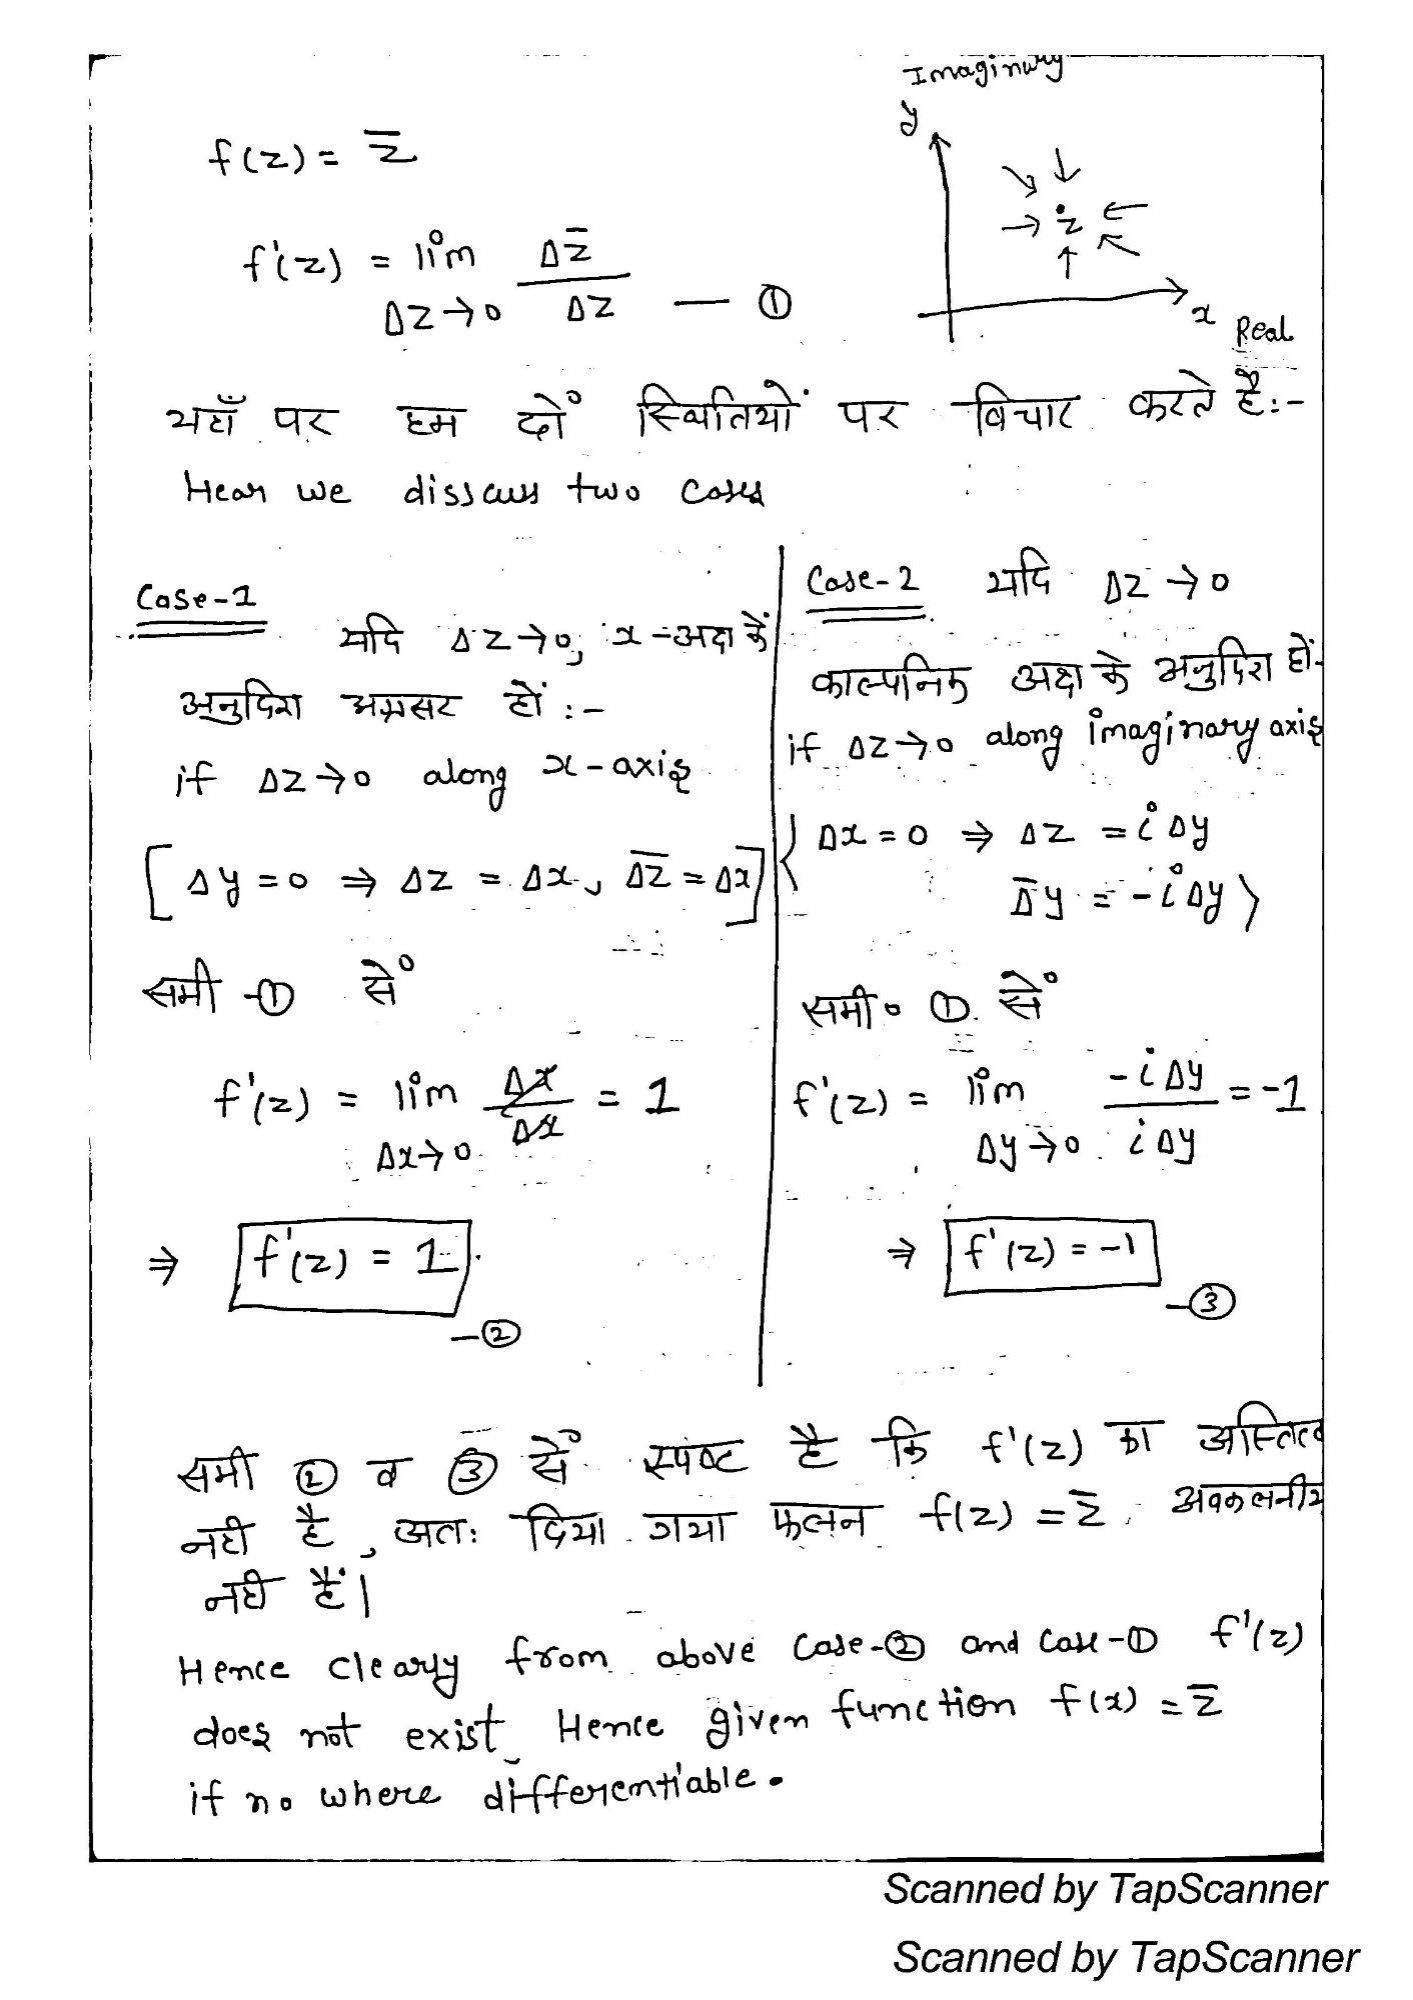 Imaginary
y
f(z) = z̅
z
f'(z) = lim Δz̅
Δz→0 Δz — ①
x Real
यहाँ पर हम दों स्थितियों पर विचार करते है:-
Hear we disscuss two cases
Case-1
यदि Δz→0, x-अक्ष कें
अनुदिश अग्रसर हों :-
if Δz→0 along x-axis
[Δy=0 ⇒ Δz = Δx, Δ̅z̅ = Δx]
समी -① सें०
f'(z) = lim Δx = 1
Δx→0 Δx
⇒ f'(z) = 1
-②
Case-2 यदि Δz→0
काल्पनिक अक्ष के अनुदिश हों-
if Δz→0 along imaginary axis
{Δx=0 ⇒ Δz = iΔy
Δ̅y = -iΔy⟩
समी० ① सें०
f'(z) = lim -iΔy = -1
Δy→0 iΔy
⇒ f'(z) = -1
-③
समी ② व ③ सें० स्पष्ट है कि f'(z) का अस्तित्व
नही है, अतः दिया गया फलन f(z) = z̅ अवकलनीय
नही हैं।
Hence cleary from above case-② and case-① f'(z)
does not exist. Hence given function f(x) = z̅
if no where differentiable.
Scanned by TapScanner
Scanned by TapScanner